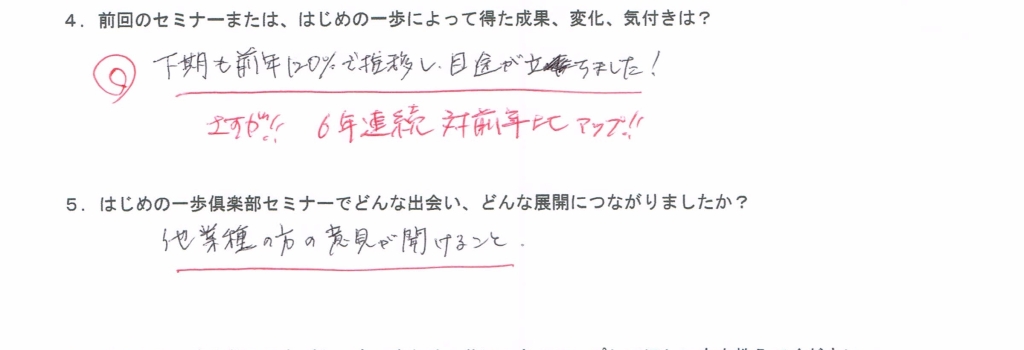 4．前回のセミナーまたは、はじめの一歩によって得た成果、変化、気付きは？
下期も前年120％で推移し、目途が立ちました！
さすが!! 6年連続 対前年比アップ!!
5．はじめの一歩倶楽部セミナーでどんな出会い、どんな展開につながりましたか？
他業種の方の意見が聞けること．